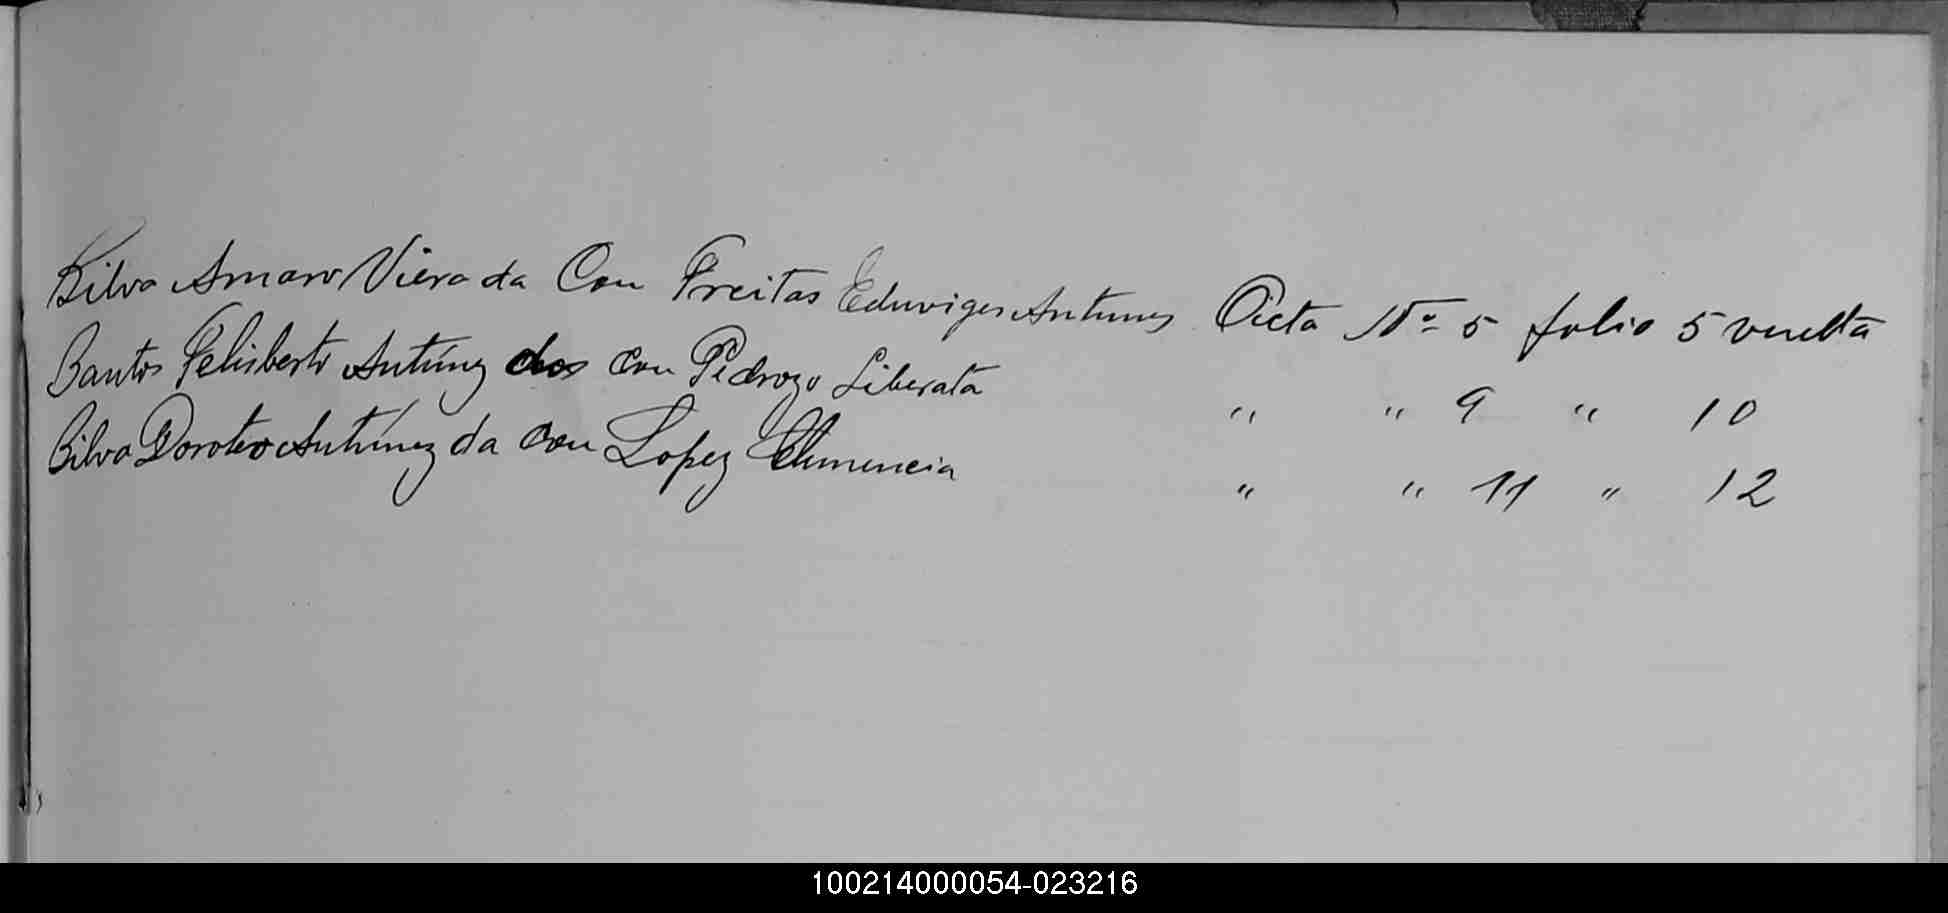 Silva Amaro Viera da Con Freitas Eduviges Antunes Acta Nº 5 folio 5 vuelta
Santos Feliberto Antúnez dos con Pedrozo Liberata " " 9 " 10
Silva Doroteo Antúnez da con Lopez Clemencia " " 11 " 12
100214000054-023216